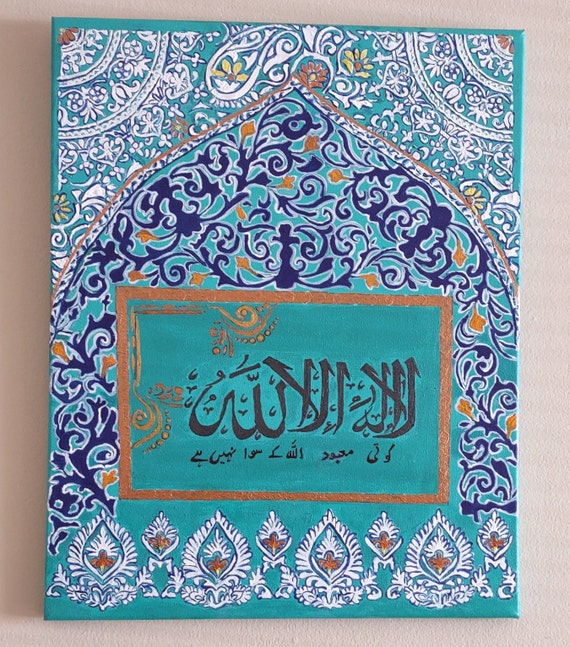 لا إله إلا الله
کوئی معبود اللہ کے سوا نہیں ہے